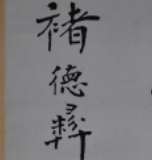 褚德彝